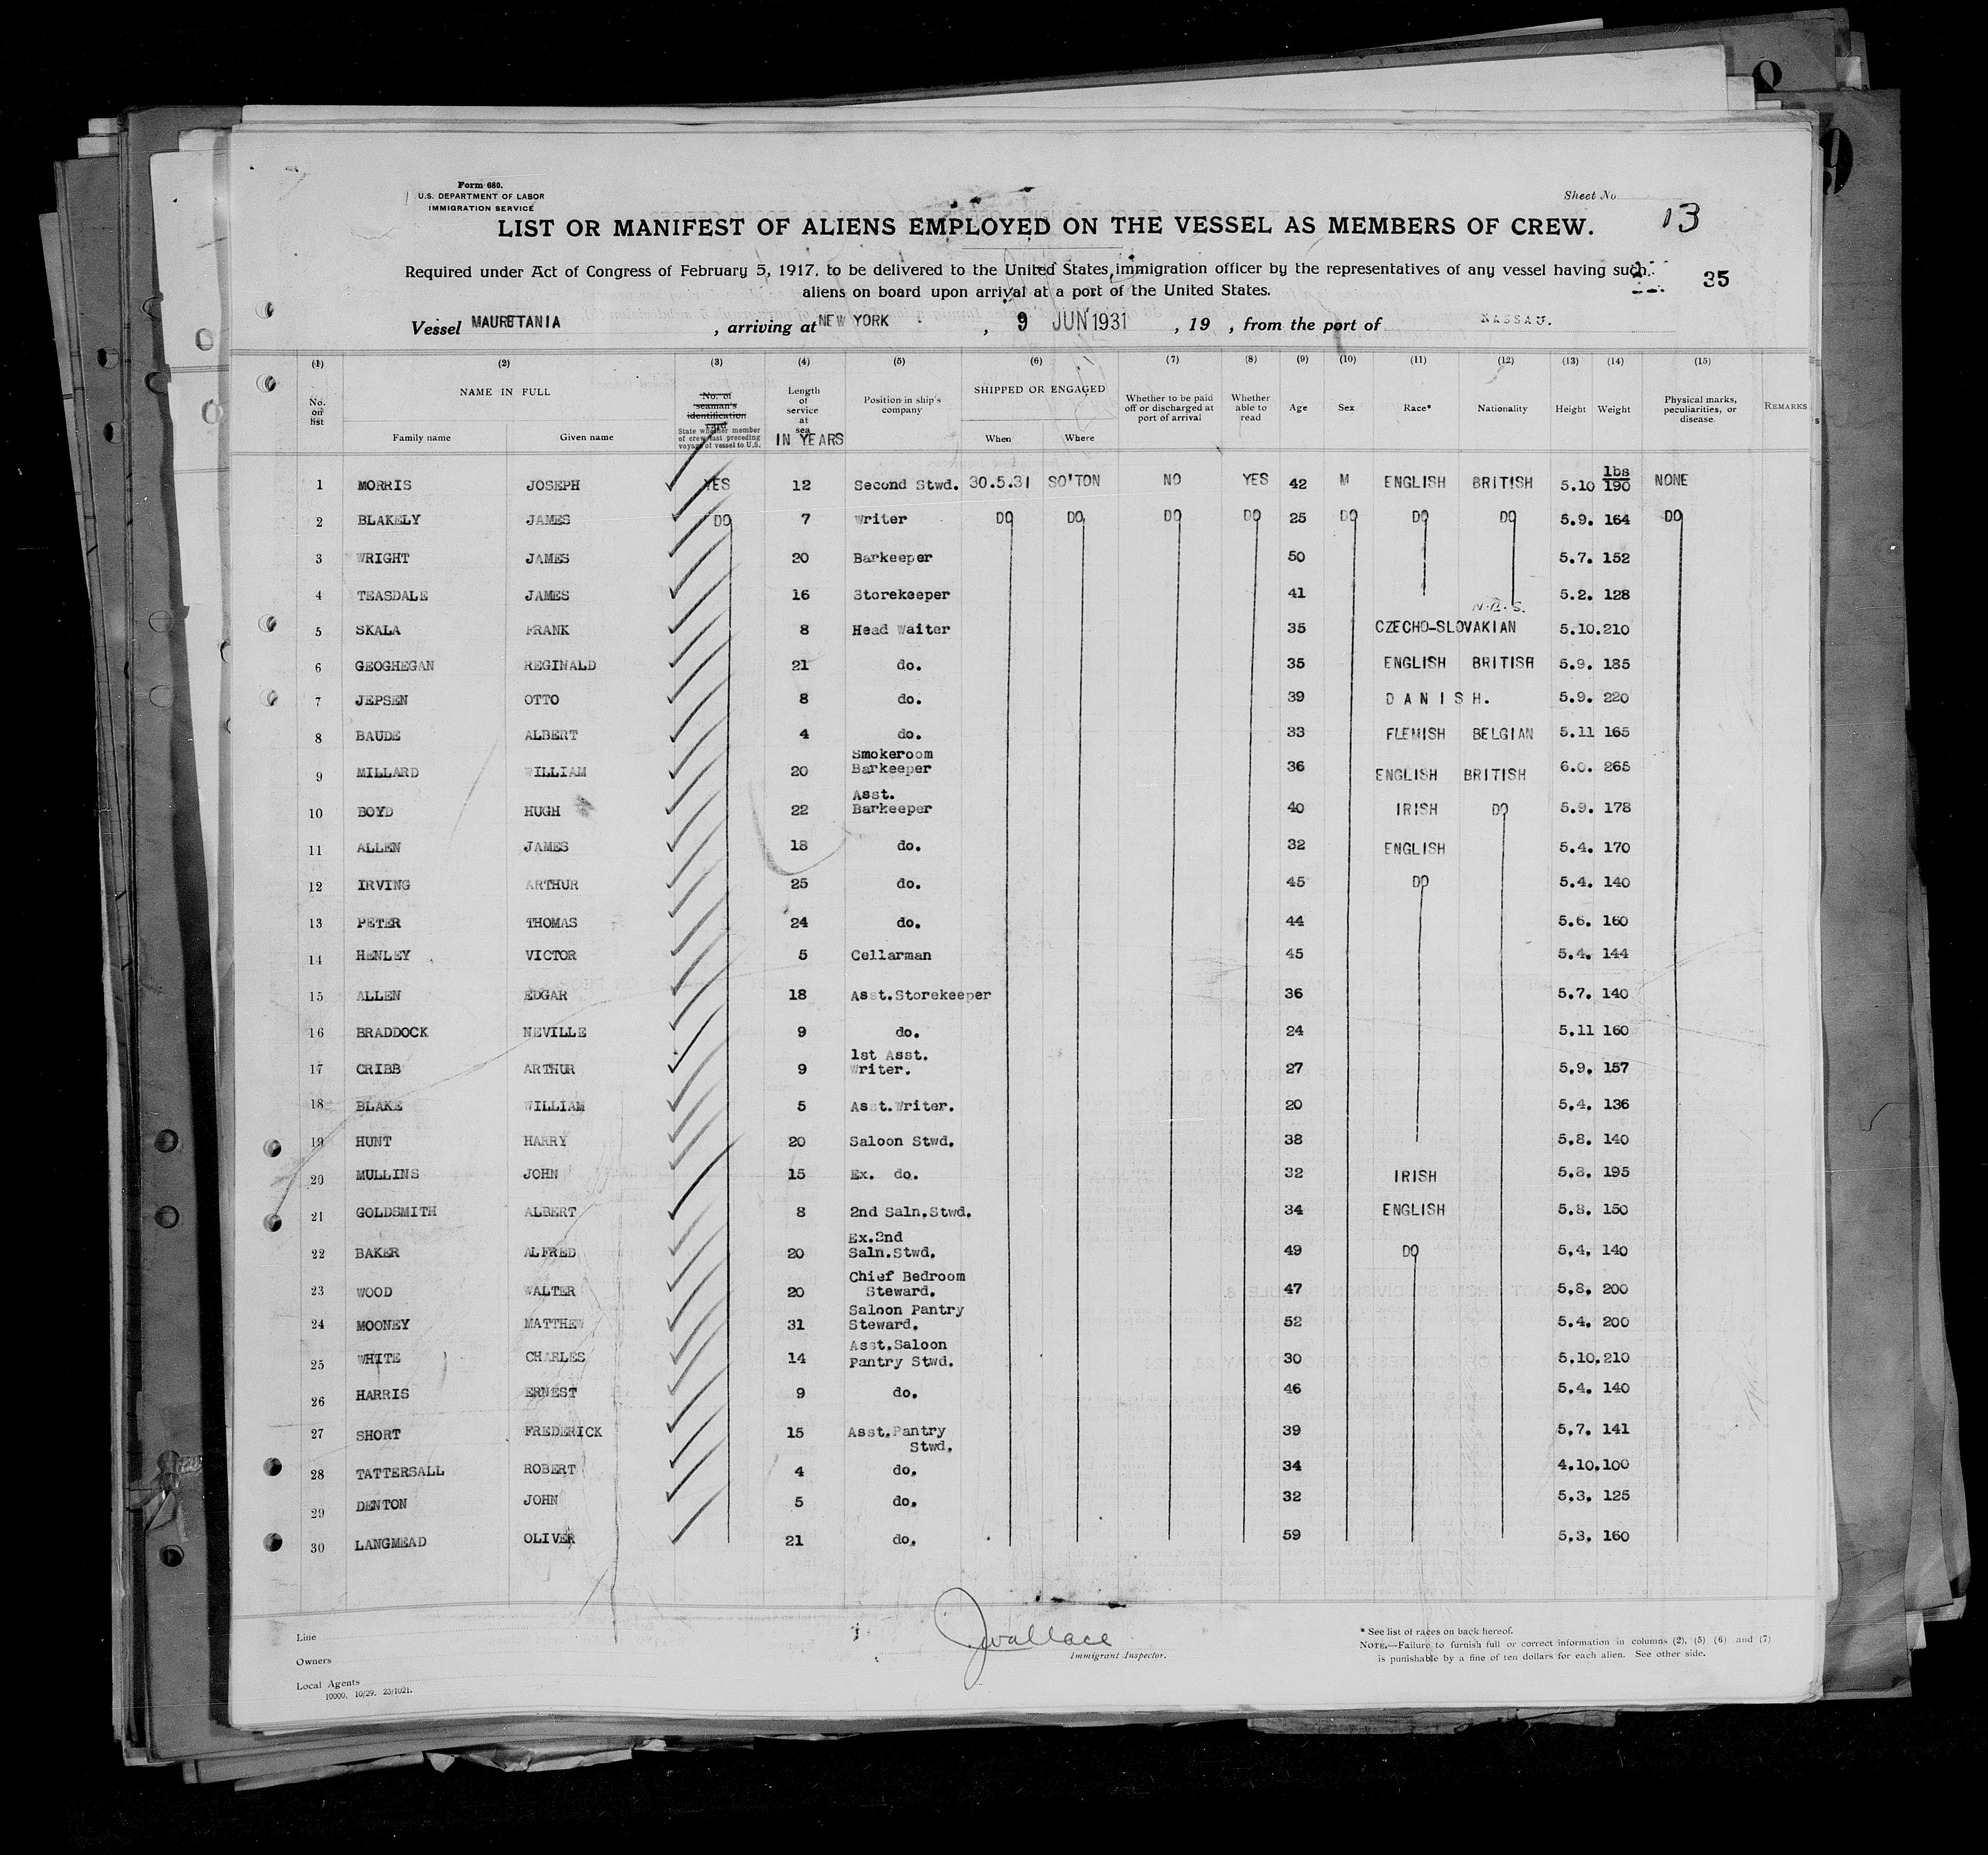 Form 680.
U.S. DEPARTMENT OF LABOR
IMMIGRATION SERVICE
Sheet No. 13
LIST OR MANIFEST OF ALIENS EMPLOYED ON THE VESSEL AS MEMBERS OF CREW.
Required under Act of Congress of February 5, 1917, to be delivered to the United States immigration officer by the representatives of any vessel having such
aliens on board upon arrival at a port of the United States.
35
Vessel MAURETANIA, arriving at NEW YORK, 9 JUN 1931, 19 , from the port of NASSAU.
(1) (2) (3) (4) (5) (6) (7) (8) (9) (10) (11) (12) (13) (14) (15)
No. on list NAME IN FULL Family name Given name No. of seaman's identification card State whether member of crew last preceding voyage of vessel to U.S. Length of service at sea IN YEARS Position in ship's company SHIPPED OR ENGAGED When Where Whether to be paid off or discharged at port of arrival Whether able to read Age Sex Race* Nationality Height Weight Physical marks, peculiarities, or disease REMARKS
1 MORRIS JOSEPH YES 12 Second Stwd. 30.5.31 SO'TON NO YES 42 M ENGLISH BRITISH 5.10 lbs 190 NONE
2 BLAKELY JAMES DO 7 Writer DO DO DO DO 25 DO DO DO 5.9. 164 DO
3 WRIGHT JAMES 20 Barkeeper 50 5.7. 152
4 TEASDALE JAMES 16 Storekeeper 41 5.2. 128
5 SKALA FRANK 8 Head Waiter 35 CZECHO-SLOVAKIAN 5.10. 210
6 GEOGHEGAN REGINALD 21 do. 35 ENGLISH BRITISH 5.9. 185
7 JEPSEN OTTO 8 do. 39 DANISH. 5.9. 220
8 BAUDE ALBERT 4 do. 33 FLEMISH BELGIAN 5.11 165
9 MILLARD WILLIAM 20 Smokeroom Barkeeper 36 ENGLISH BRITISH 6.0. 265
10 BOYD HUGH 22 Asst. Barkeeper 40 IRISH DO 5.9. 178
11 ALLEN JAMES 18 do. 32 ENGLISH 5.4. 170
12 IRVING ARTHUR 25 do. 45 DO 5.4. 140
13 PETER THOMAS 24 do. 44 5.6. 160
14 HENLEY VICTOR 5 Cellarman 45 5.4. 144
15 ALLEN EDGAR 18 Asst.Storekeeper 36 5.7. 140
16 BRADDOCK NEVILLE 9 do. 24 5.11 160
17 CRIBB ARTHUR 9 1st Asst. Writer. 27 5.9. 157
18 BLAKE WILLIAM 5 Asst.Writer. 20 5.4. 136
19 HUNT HARRY 20 Saloon Stwd. 38 5.8. 140
20 MULLINS JOHN 15 Ex. do. 32 IRISH 5.8. 195
21 GOLDSMITH ALBERT 8 2nd Saln.Stwd. 34 ENGLISH 5.8. 150
22 BAKER ALFRED 20 Ex.2nd Saln.Stwd. 49 DO 5.4. 140
23 WOOD WALTER 20 Chief Bedroom Steward. 47 5.8. 200
24 MOONEY MATTHEW 31 Saloon Pantry Steward. 52 5.4. 200
25 WHITE CHARLES 14 Asst.Saloon Pantry Stwd. 30 5.10. 210
26 HARRIS ERNEST 9 do. 46 5.4. 140
27 SHORT FREDERICK 15 Asst.Pantry Stwd. 39 5.7. 141
28 TATTERSALL ROBERT 4 do. 34 4.10. 100
29 DENTON JOHN 5 do. 32 5.3. 125
30 LANGMEAD OLIVER 21 do. 59 5.3. 160
Line
Owners
Local Agents
10000, 10/29. 23/1021.
JWallace
Immigrant Inspector.
* See list of races on back hereof.
NOTE.—Failure to furnish full or correct information in columns (2), (5) (6) and (7)
is punishable by a fine of ten dollars for each alien. See other side.